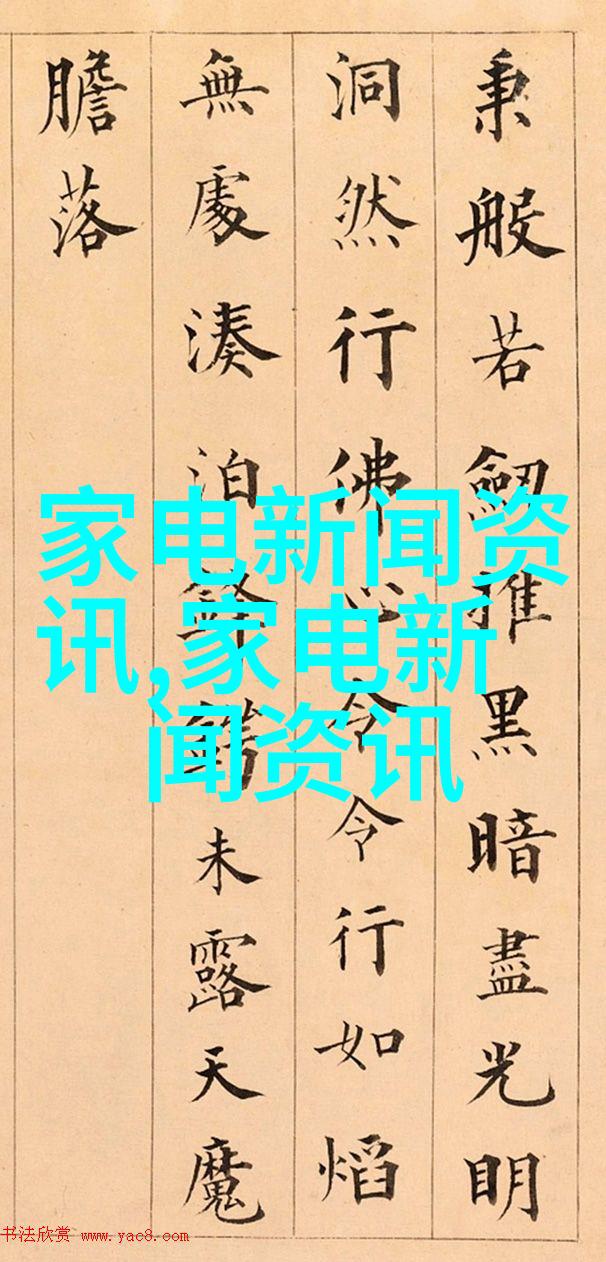 秉般若劒推黑暗盡光明
洞然行佛心令令行如熖
無處湊泊鋒鍔未露天魔
膽落
家电新闻资
讯,家电新
闻资讯
书法欣赏 www.yac8.com